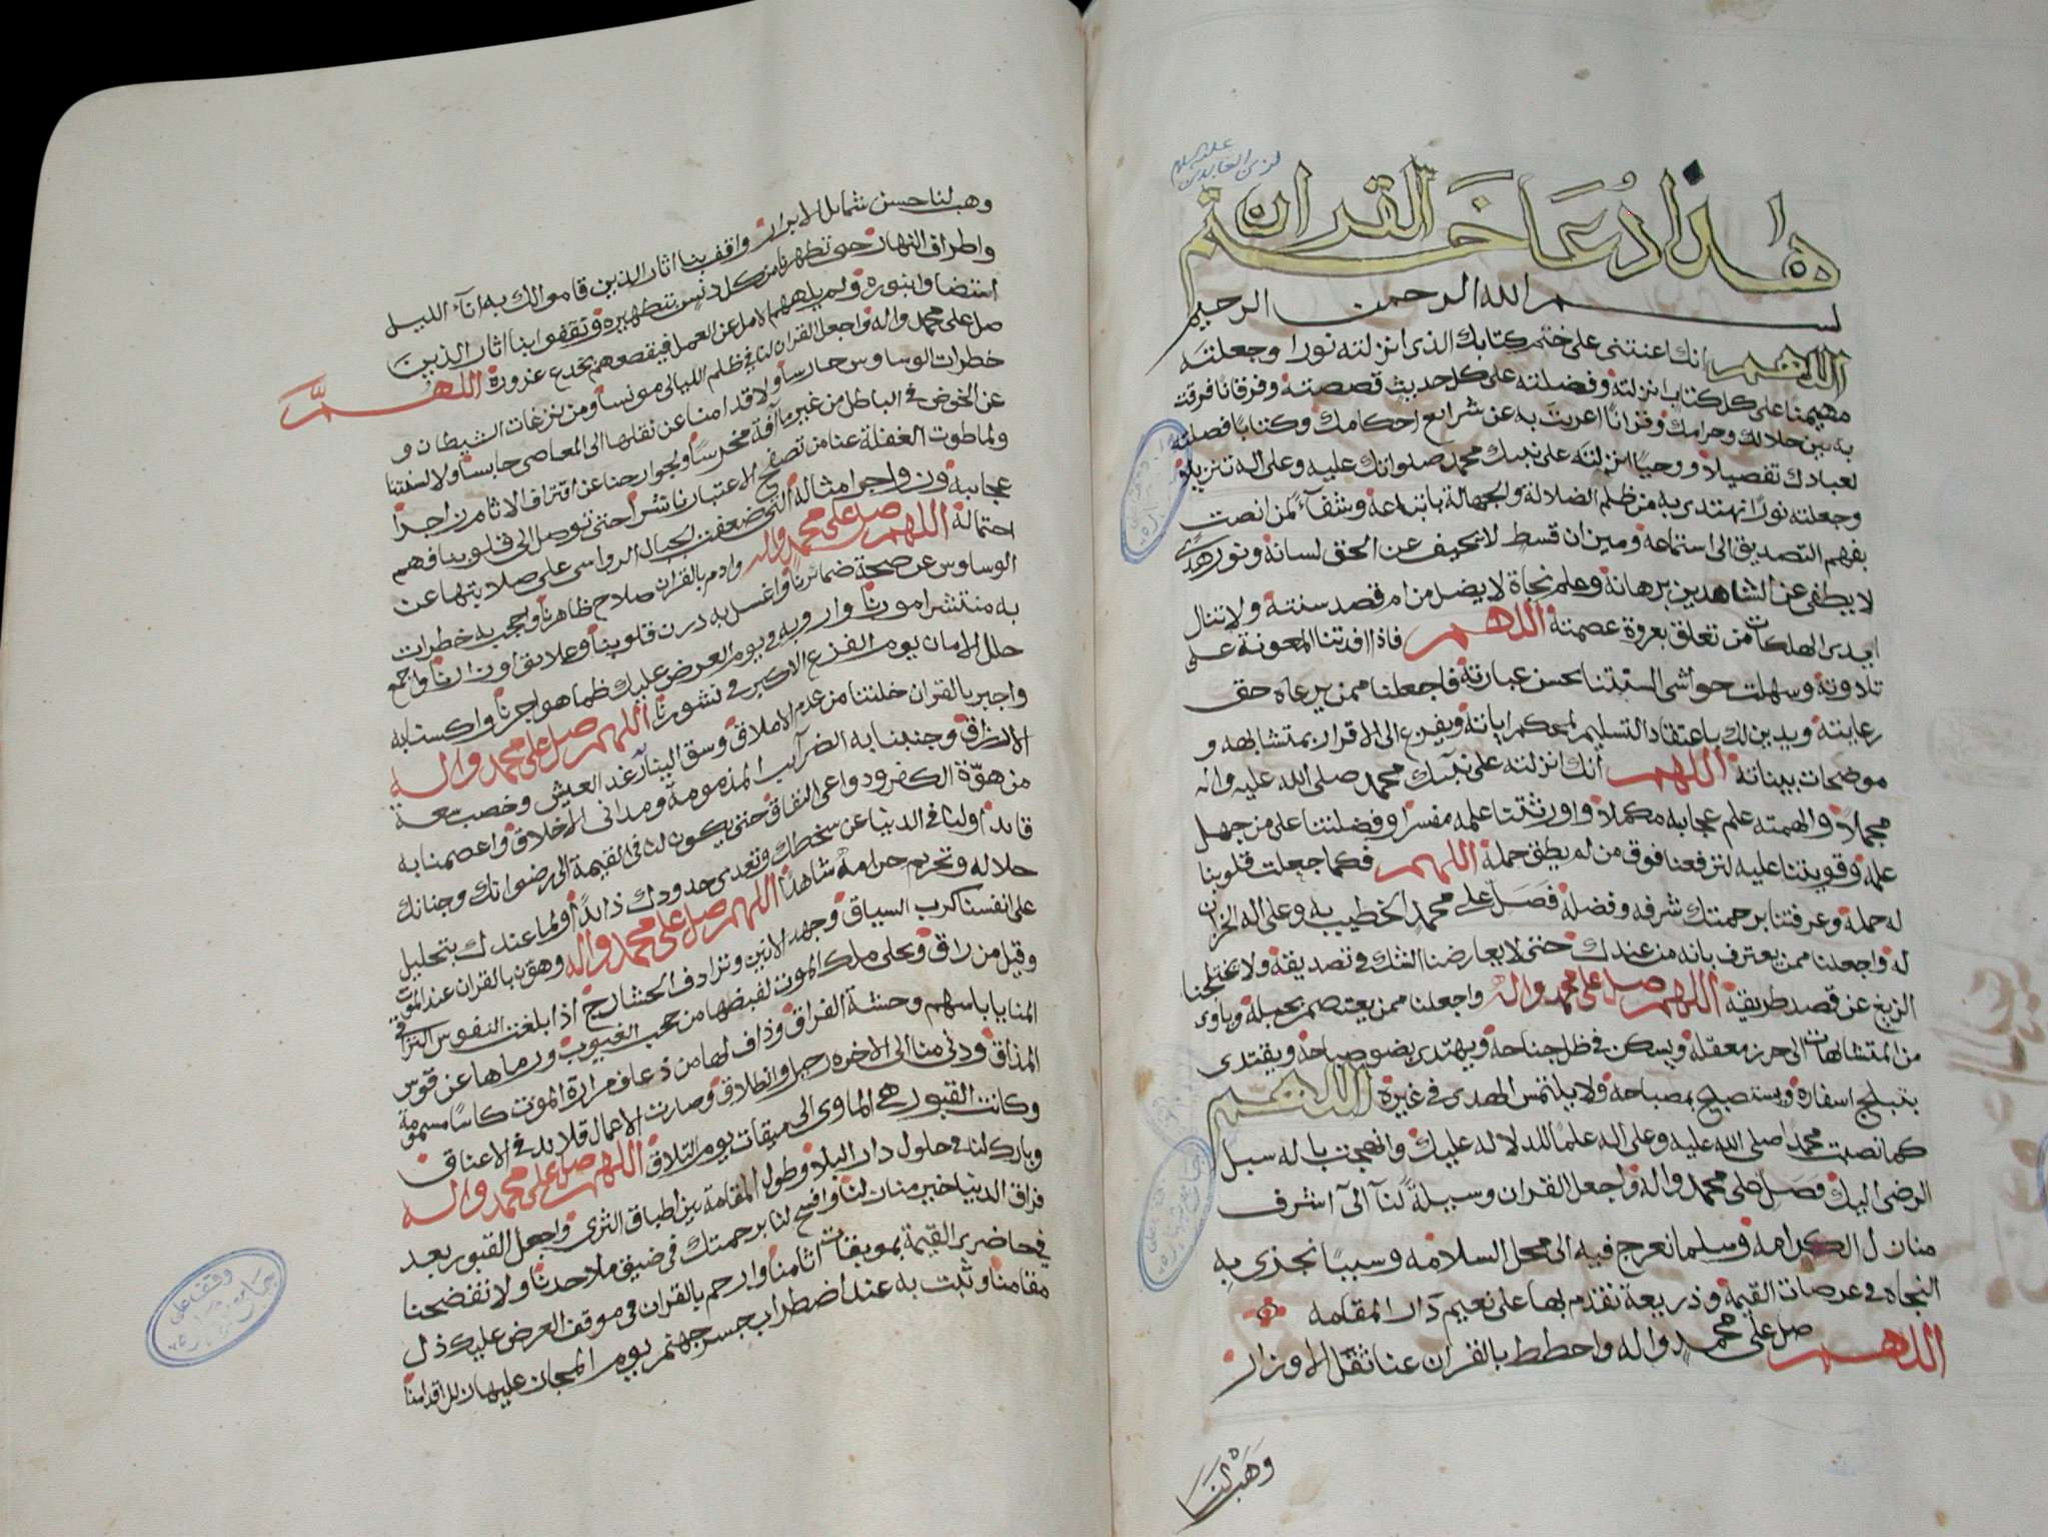 هذا دعا ختم القران
لزين العابدين
عليه السلم
بسم الله الرحمن الرحيم
اللهم انك اعنتنى على ختم كتابك الذى انزلته نورا وجعلته
مهيمنا على كل كتاب انزلته وفضلته على كل حديث قصصته وفرقانا فرقت
به بين حلالك وحرامك وقرانا اعربت به عن شرايع احكامك وكتابا فصلته
لعبادك تفصيلا ووحيا انزلته على نبيك محمد صلواتك عليه وعلى اله تنزيلا
وجعلته نورا نهتدى به من ظلم الضلالة والجهالة باتباعه وشفآء لمن انصت
بفهم التصديق الى استماعه وميزان قسط لا يحيف عن الحق لسانه ونور هدى
لا يطفى عن الشاهدين برهانه وعلم نجاة لا يضل من ام قصد سنته ولا تنال
ايدى الهلكات من تعلق بعروة عصمته اللهم فاذا افدتنا المعونة على
تلاوته وسهلت حواشى السنتنا بحسن عبارته فاجعلنا ممن يرعاه حق
رعايته ويدين لك باعتقاد التسليم لمحكم اياته ويفزع الى الاقرار بمتشابهه و
موضحات بيناته اللهم انك انزلته على نبيك محمد صلى الله عليه واله
مجملا والهمته علم عجايبه مكملا واورثتنا علمه مفسرا وفضلتنا على من جهل
علمه وقويتنا عليه لترفعنا فوق من لم يطق حمله اللهم فكما جعلت قلوبنا
له حملة وعرفتنا برحمتك شرفه وفضله فصل على محمد الخطيب به وعلى اله الخزان
له واجعلنا ممن يعترف بانه من عندك حتى لا يعارضنا الشك فى تصديقه ولا يختلجنا
الزيغ عن قصد طريقه اللهم صل على محمد واله واجعلنا ممن يعتصم بحبله وياوى
من المتشابهات الى حرز معقله ويسكن فى ظل جناحه ويهتدى بضو صباحه ويقتدى
بتبلج اسفاره ويستصبح بمصباحه ولا يلتمس الهدى فى غيره اللهم
كما نصبت محمدا صلى الله عليه وعلى اله علما للدلالة عليك وانهجت باله سبل
الرضى اليك فصل على محمد واله واجعل القران وسيلة لنا الى اشرف
منازل الكرامه وسلما نعرج فيه الى محل السلامه وسببا نجزى به
النجاه فى عرصات القيمة وذريعة نقدم بها على نعيم دار المقامه
اللهم صل على محمد واله واحطط بالقران عنا ثقل الاوزار
وهب لنا
وهب لنا حسن شمايل الابرار واقف بنا اثار الذين قاموا لك به انآء الليل
واطراف النهار حتى تطهرنا من كل دنس بتطهيره وتقفوا بنا اثار الذين
استضاوا بنوره ولم يلههم الامل عن العمل فيقطعهم بخدع غروره اللهم
صل على محمد واله واجعل القران لنا فى ظلم الليالى مونسا ومن نزغات الشيطان و
خطرات الوساوس حارسا ولاقدامنا عن نقلها الى المعاصى حابسا ولالسنتنا
عن الخوض فى الباطل من غير ما آفة مخرسا ولجوارحنا عن اقتراف الاثام زاجرا
ولما طوت الغفلة عنا من تصفح الاعتبار ناشرا حتى توصل الى قلوبنا فهم
عجايبه وزواجر امثاله التى ضعفت الجبال الرواسى على صلابتها عن
احتماله اللهم صل على محمد واله وادم بالقران صلاح ظاهرنا واحجب به خطرات
الوساوس عن صحة ضمائرنا واغسل به درن قلوبنا وعلايق اوزارنا واجمع
به منتشر امورنا وارو به فى يوم العرض عليك ظما هواجرنا واكسنا به
حلل الامان يوم الفزع الاكبر فى نشورنا اللهم صل على محمد واله
واجبر بالقران خلتنا من عدم الاملاق وسق الينا رغد العيش وخصب سعة
الارزاق وجنبنا به الضرآيب المذمومة ومدانى الاخلاق واعصمنا به
من هوة الكفر ودواعى النفاق حتى يكون لنا فى القيمة الى رضوانك وجنانك
قايدا ولنا فى الدنيا عن سخطك وتعدى حدودك ذايدا ولما عندك بتحليل
حلاله وتحريم حرامه شاهدا اللهم صل على محمد واله وهون بالقران عند الموت
على انفسنا كرب السياق وجهد الانين وترادف الحشارج اذا بلغت النفوس التراقى
وقيل من راق وتجلى ملك الموت لقبضها من حجب الغيوب ورماها عن قوس
المنايا باسهم وحشة الفراق وذاف لها من ذعاف مرارة الموت كاسا مسمومة
المذاق ودنى منا الى الاخره رحيل وانطلاق وصارت الاعمال قلايد فى الاعناق
وكانت القبور هى الماوى الى ميقات يوم التلاق اللهم صل على محمد واله
وبارك لنا فى حلول دار البلا وطول المقامة بين اطباق الثرى واجعل القبور بعد
فراق الدنيا خير منازلنا وافسح لنا برحمتك فى ضيق ملاحدنا ولا تفضحنا
فى حاضرى القيمة بموبقات اثامنا وارحم بالقران فى موقف العرض عليك ذل
مقامنا وثبت به عند اضطراب جسر جهنم يوم المجاز عليها زلل اقدامنا
وقف على